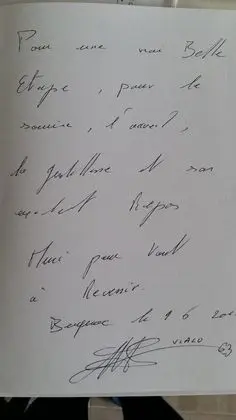 Pour une vrai Belle
Etape, pour le
sourire, l'accueil,
la gentillesse et son
excellent Repas
Merci pour tout
à Revenir.
Bergerac le 9 6 20
VIALO
63